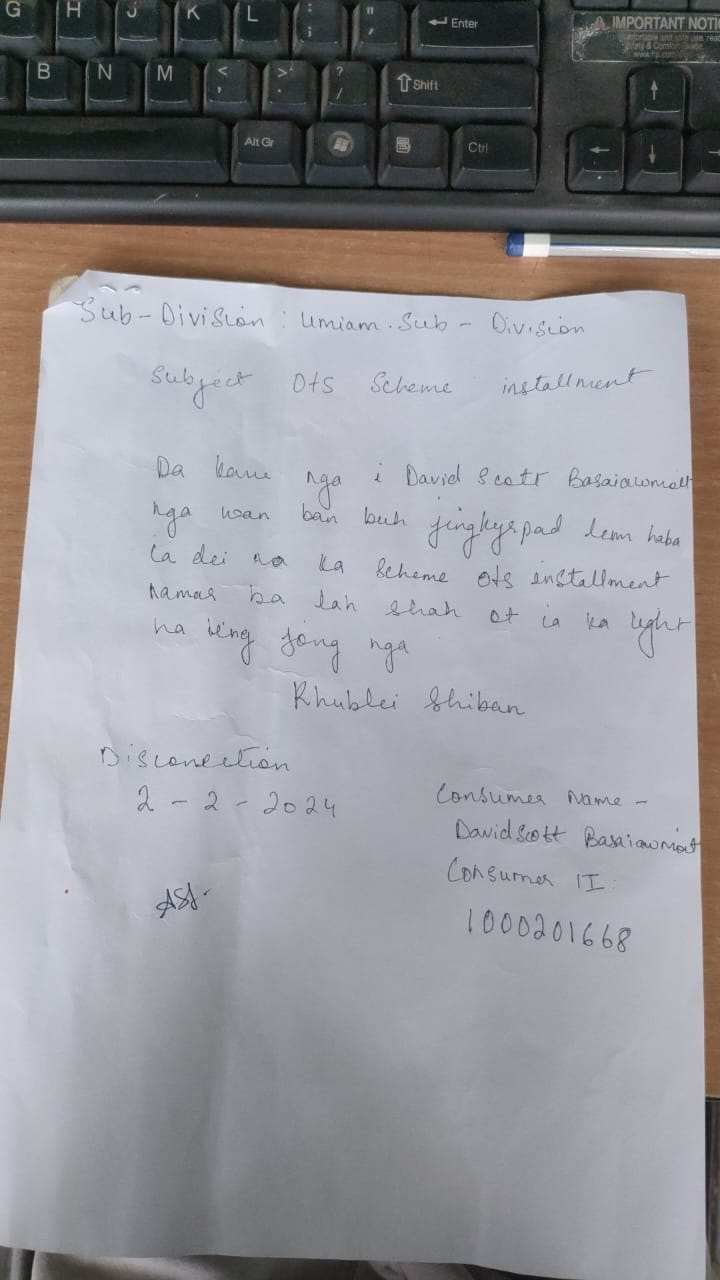 G H J K L : ; " ' Enter
IMPORTANT NOTI
www.hp.com
B N M < , > . ? / Shift
Alt Gr Ctrl
Sub-Division : Umiam. Sub - Division
Subject OtS Scheme installment
Da kane nga i David Scott Basaiawmoit
nga wan ban buh jingkyrpad lem haba
ia dei na ka Scheme ots installment
namar ba lah shah ot ia ka light
ha ïeng jong nga
Khublei Shiban
Disconection
2 - 2 - 2024
Consumer Name -
David Scott Basaiawmoit
Consumer II :
1000201668